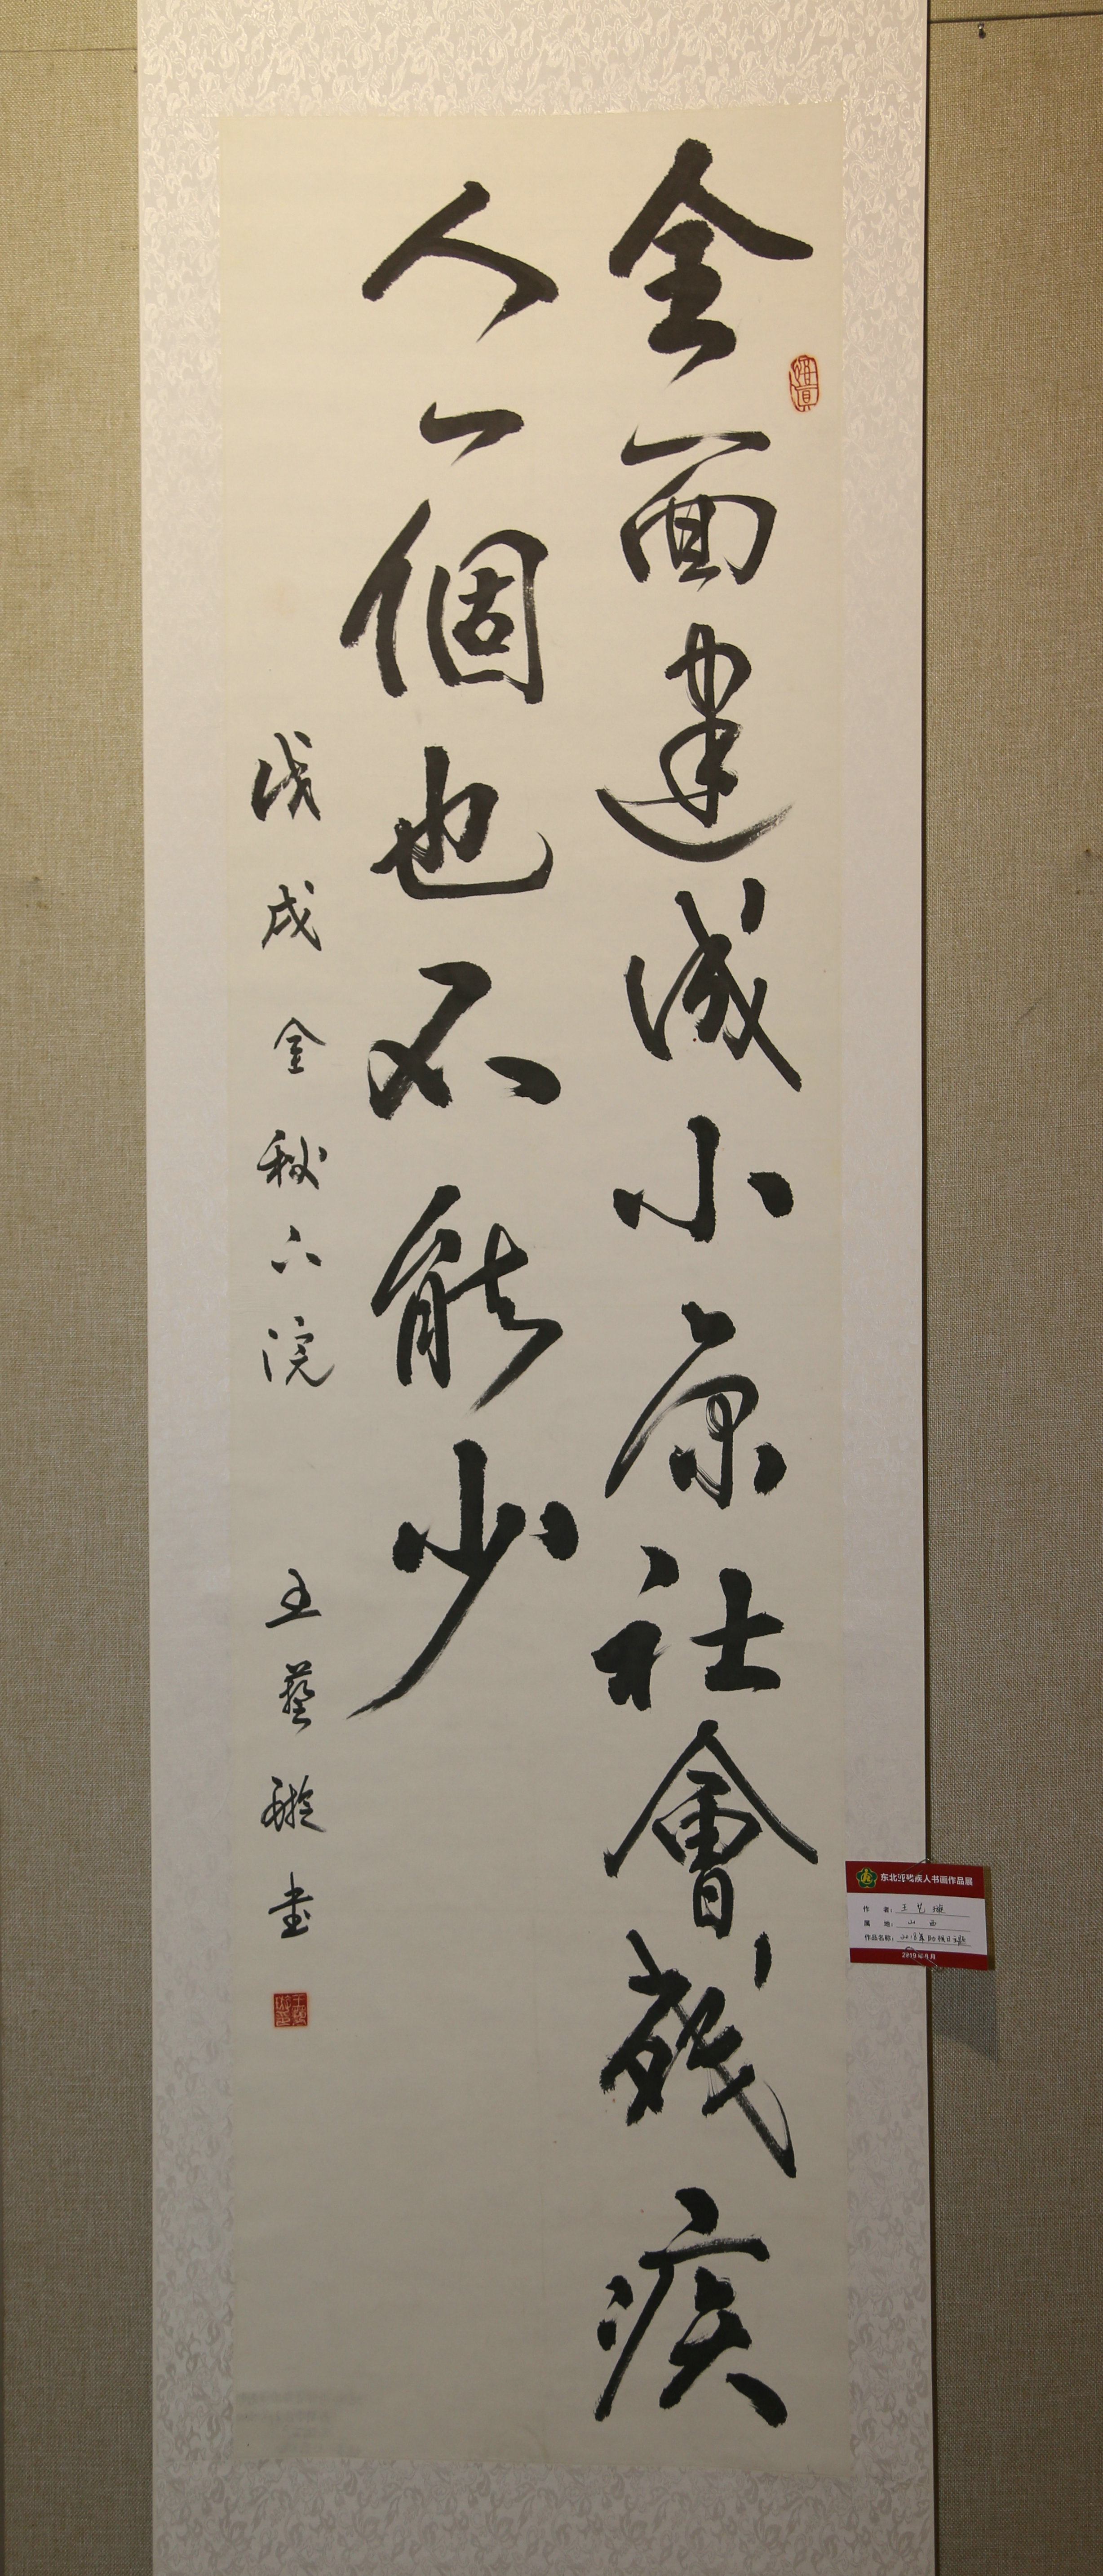 全面建成小康社會殘疾
人一個也不能少
戊戌金秋六院
王藝璇書
东北亚残疾人书画作品展
作 者：王艺璇
属 地：山西
作品名称：
2019年9月